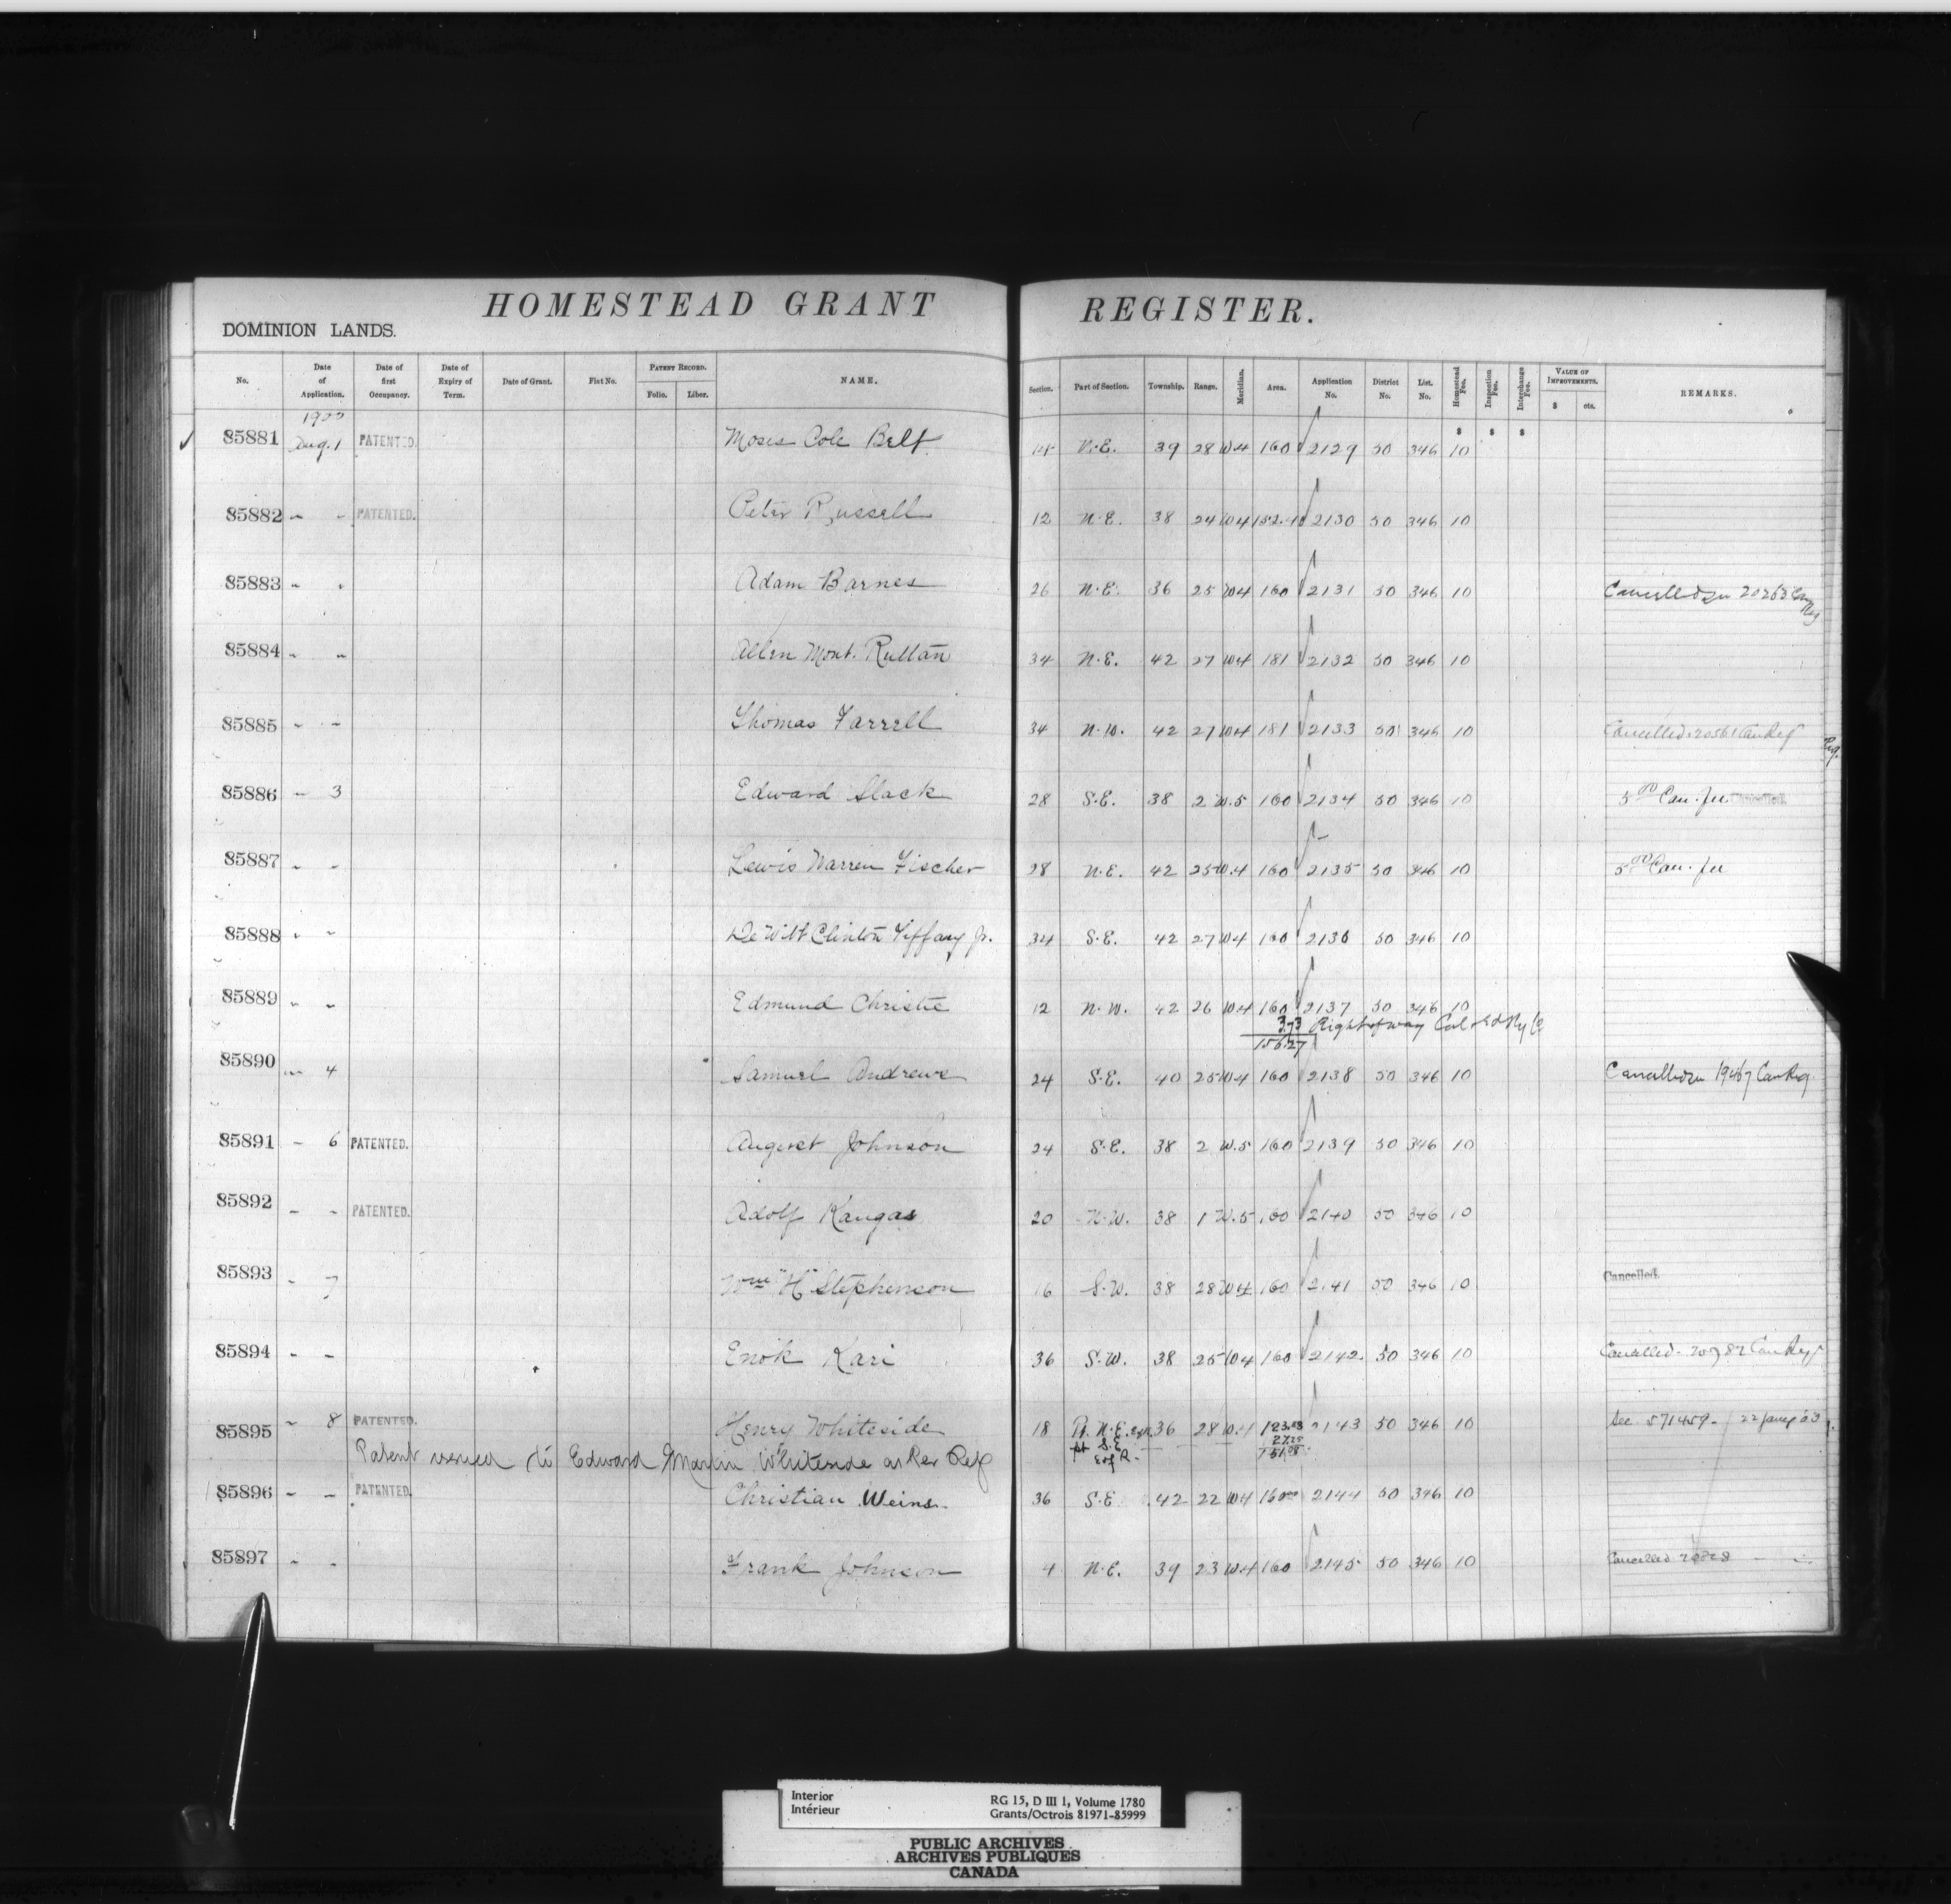 HOMESTEAD GRANT REGISTER.
DOMINION LANDS.
No. Date of Application. Date of first Occupancy. Date of Expiry of Term. Date of Grant. Fiat No. PATENT RECORD. Folio. Liber. NAME. Section. Part of Section. Township. Range. Meridian. Area. Application No. District No. List. No. Homestead Fee. Inspection Fee. Interchange Fee. VALUE OF IMPROVEMENTS. $ cts. REMARKS.
1900 $ $ $
85881 Aug. 1 PATENTED. Moses Cole Belt N.E. 39 28 W4 160 2129 50 346 10
85882 " " PATENTED. Peter Russell 12 N.E. 38 24 W4 2130 50 346 10
85883 " " Adam Barnes 26 N.E. 36 25 W4 160 2131 50 346 10 Cancelled 20263 Can Reg
85884 " " Allen Mont. Ruttan 34 N.E. 42 27 W4 181 2132 50 346 10
85885 " " Thomas Farrell 34 N.W. 42 27 W4 181 2133 50 346 10 Cancelled 20561 Can Reg
Reg.
85886 " 3 Edward Slack 28 S.E. 38 2 W.5 160 2134 50 346 10 5.00 Can. fee Cancelled.
85887 " " Lewis Warren Fischer 28 N.E. 42 25 W.4 160 2135 50 346 10 5.00 Can. fee
85888 " " De Witt Clinton Tiffany Jr. 34 S.E. 42 27 W4 160 2136 50 346 10
85889 " " Edmund Christie 12 N.W. 42 26 W4 160 2137 50 346 10
3.73 Right of way Cal & Ed Ry Co
156.27
85890 " 4 Samuel Andrews 24 S.E. 40 25 W4 160 2138 50 346 10 Cancelled 19467 Can Reg
85891 " 6 PATENTED. August Johnson 24 S.E. 38 2 W.5 160 2139 50 346 10
85892 " " PATENTED. Adolf Kangas 20 N.W. 38 1 W.5 160 2140 50 346 10
85893 " 7 Wm "H" Stephenson 16 S.W. 38 28 W4 160 2141 50 346 10 Cancelled.
85894 " " Enok Kari 36 S.W. 38 25 W4 160 2142 50 346 10 Cancelled 20782 Can Reg
85895 " 8 PATENTED. Henry Whiteside 18 Pt. N.E. 36 28 W.4 2143 50 346 10 See 571459 - 22 Jany '03
pt S.E.
E of R.
Patent issued to Edward Martin Whiteside as Per Rep
85896 " " PATENTED. Christian Weins 36 S.E. 42 22 W4 160.00 2144 50 346 10
85897 " " Frank Johnson 4 N.E. 39 23 W4 160 2145 50 346 10 Cancelled 20828 " "
Interior RG 15, D III 1, Volume 1780
Intérieur Grants/Octrois 81971-85999
PUBLIC ARCHIVES
ARCHIVES PUBLIQUES
CANADA